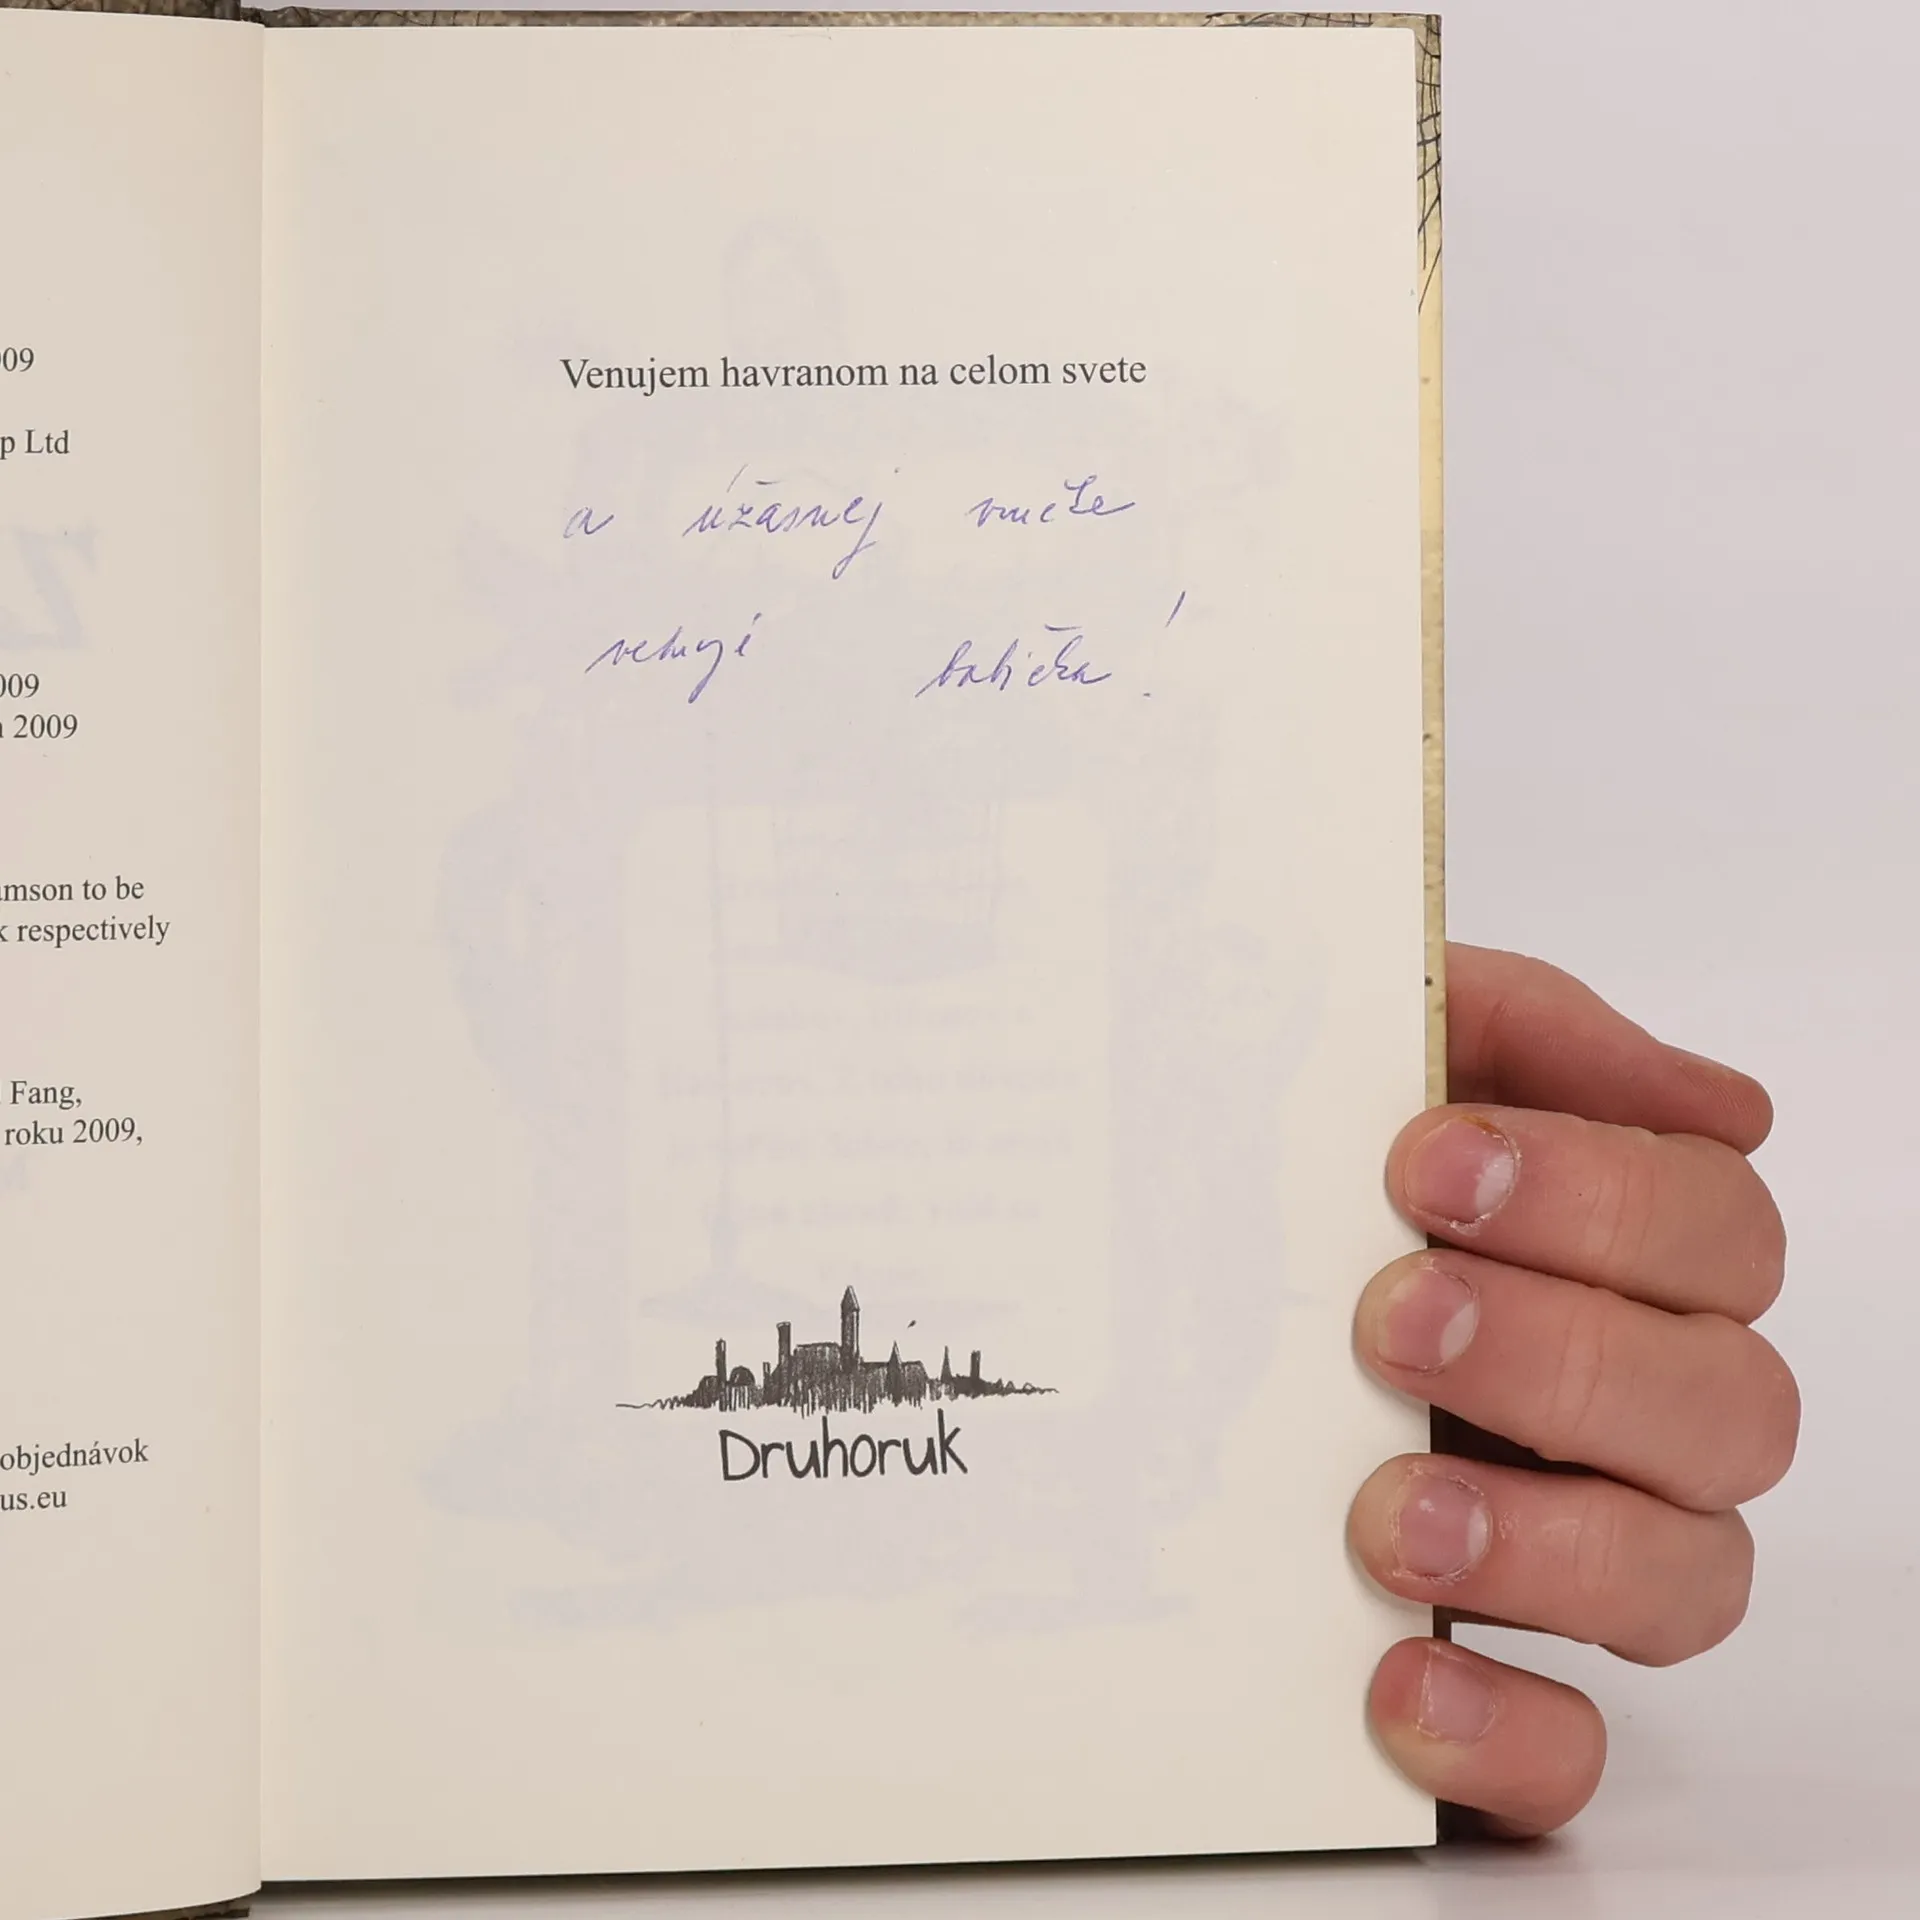 09
p Ltd
009
n 2009
mson to be
k respectively
Fang,
roku 2009,
objednávok
us.eu
Venujem havranom na celom svete
a úžasnej vnučke
venuje babička!
Druhoruk